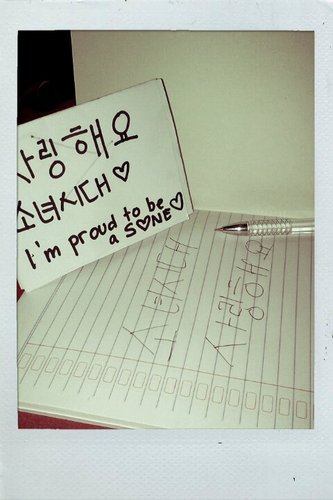 사랑해요
소녀시대♡
I'm proud to be
a S♡NE♡
소녀시대
사랑해요